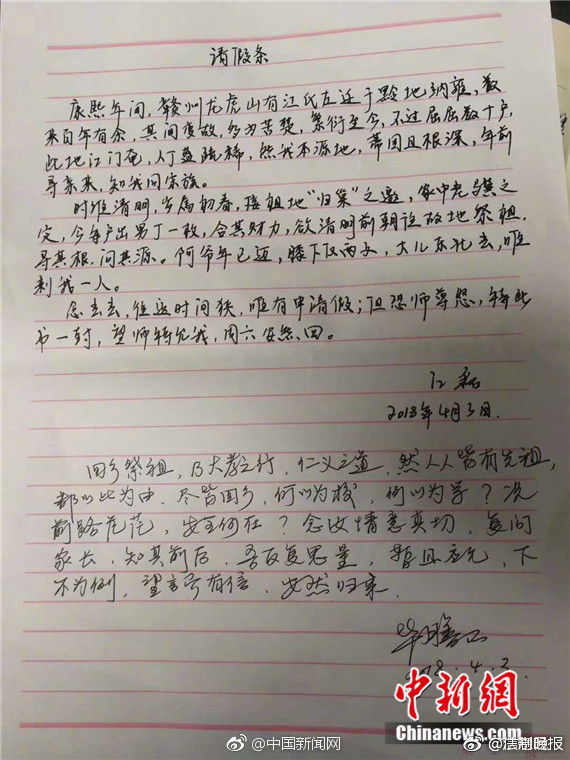 请假条
康熙年间，赣州龙虎山有江氏左迁于黔地纳雍，数
来百年有余，其间变故，多为苦楚，繁衍至今，不过屈屈数十户，
此地江门奄，人丁益疏稀，然我本源地，蒂固且根深，年前
寻亲来，知我同宗族。
时维清明，岁属初春，接祖地“归巢”之邀，家中老
定，今每户出男丁一枚，合其财力，欲清明前朝设故地祭祖，
寻其根，问其源。阿爷年已迈，膝下仅两丈，大儿东北去，唯
剩我一人。
念去去，往返时间狭，唯有申请假；但恐师尊怒，
书一封，望师特允我，周六安然回。
江磊
2018年4月3日.
回乡祭祖，乃大孝之行，仁义之道，然人人皆有先祖，
都以此为由，尽皆回乡，何以为校，何以为学？况
前路茫茫，安至何在？念汝情意真切，复问
家长，知其前后，吾反复思量，暂且应允，下
不为例，望言而有信，安然归来.
18.4.3.
中新网
Chinanews.com
@中国新闻网
@法制晚报